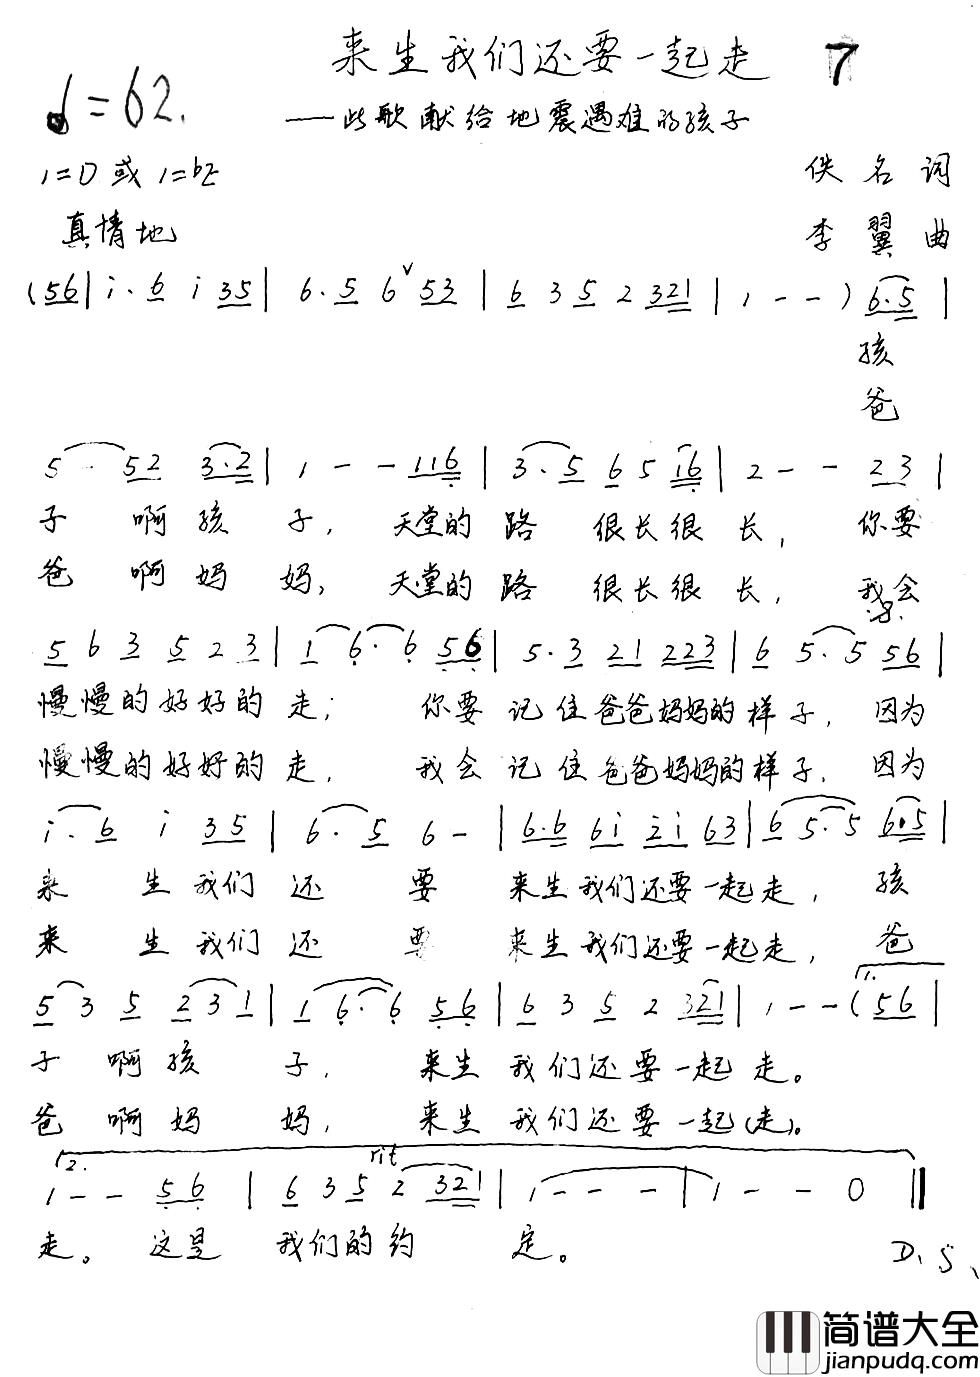 来生我们还要一起走 7
♩=62.
——此歌献给地震遇难的孩子
1=D 或 1=bE
佚名词
真情地
李翼曲
(56 | i·6 i 35 | 6·5 6 ∨ 53 | 6 3 5 2 321 | 1 - - ) 6·5 |
孩
爸
5 · 52 3·2 | 1 - - 116 | 3·5 6 5 16 | 2 - - 23 |
子 啊孩 子, 天堂的路 很长很长, 你要
爸 啊妈 妈, 天堂的路 很长很长, 我会
5 6 3 5 2 3 | 1 6· 6 56 | 5·3 21 223 | 6 5· 5 56 |
慢慢的好好的走; 你要记住爸爸妈妈的样子, 因为
慢慢的好好的走, 我会记住爸爸妈妈的样子, 因为
i·6 i 35 | 6·5 6 - | 6·6 6i 2i 63 | 6 5· 5 6·5 |
来生我们还要 来生我们还要一起走, 孩
来生我们还要 来生我们还要一起走, 爸
1.
5 3 5 2 3 1 | 1 6· 6 56 | 6 3 5 2 321 | 1 - - (56 |
子 啊孩 子, 来生我们还要一起走。
爸 啊妈 妈, 来生我们还要一起(走)。
2. rit
1 - - 56 | 6 3 5 2 321 | 1 - - - | 1 - - 0 ‖
走。 这是我们的约定。
D.S.
简谱大全
jianpudq.com